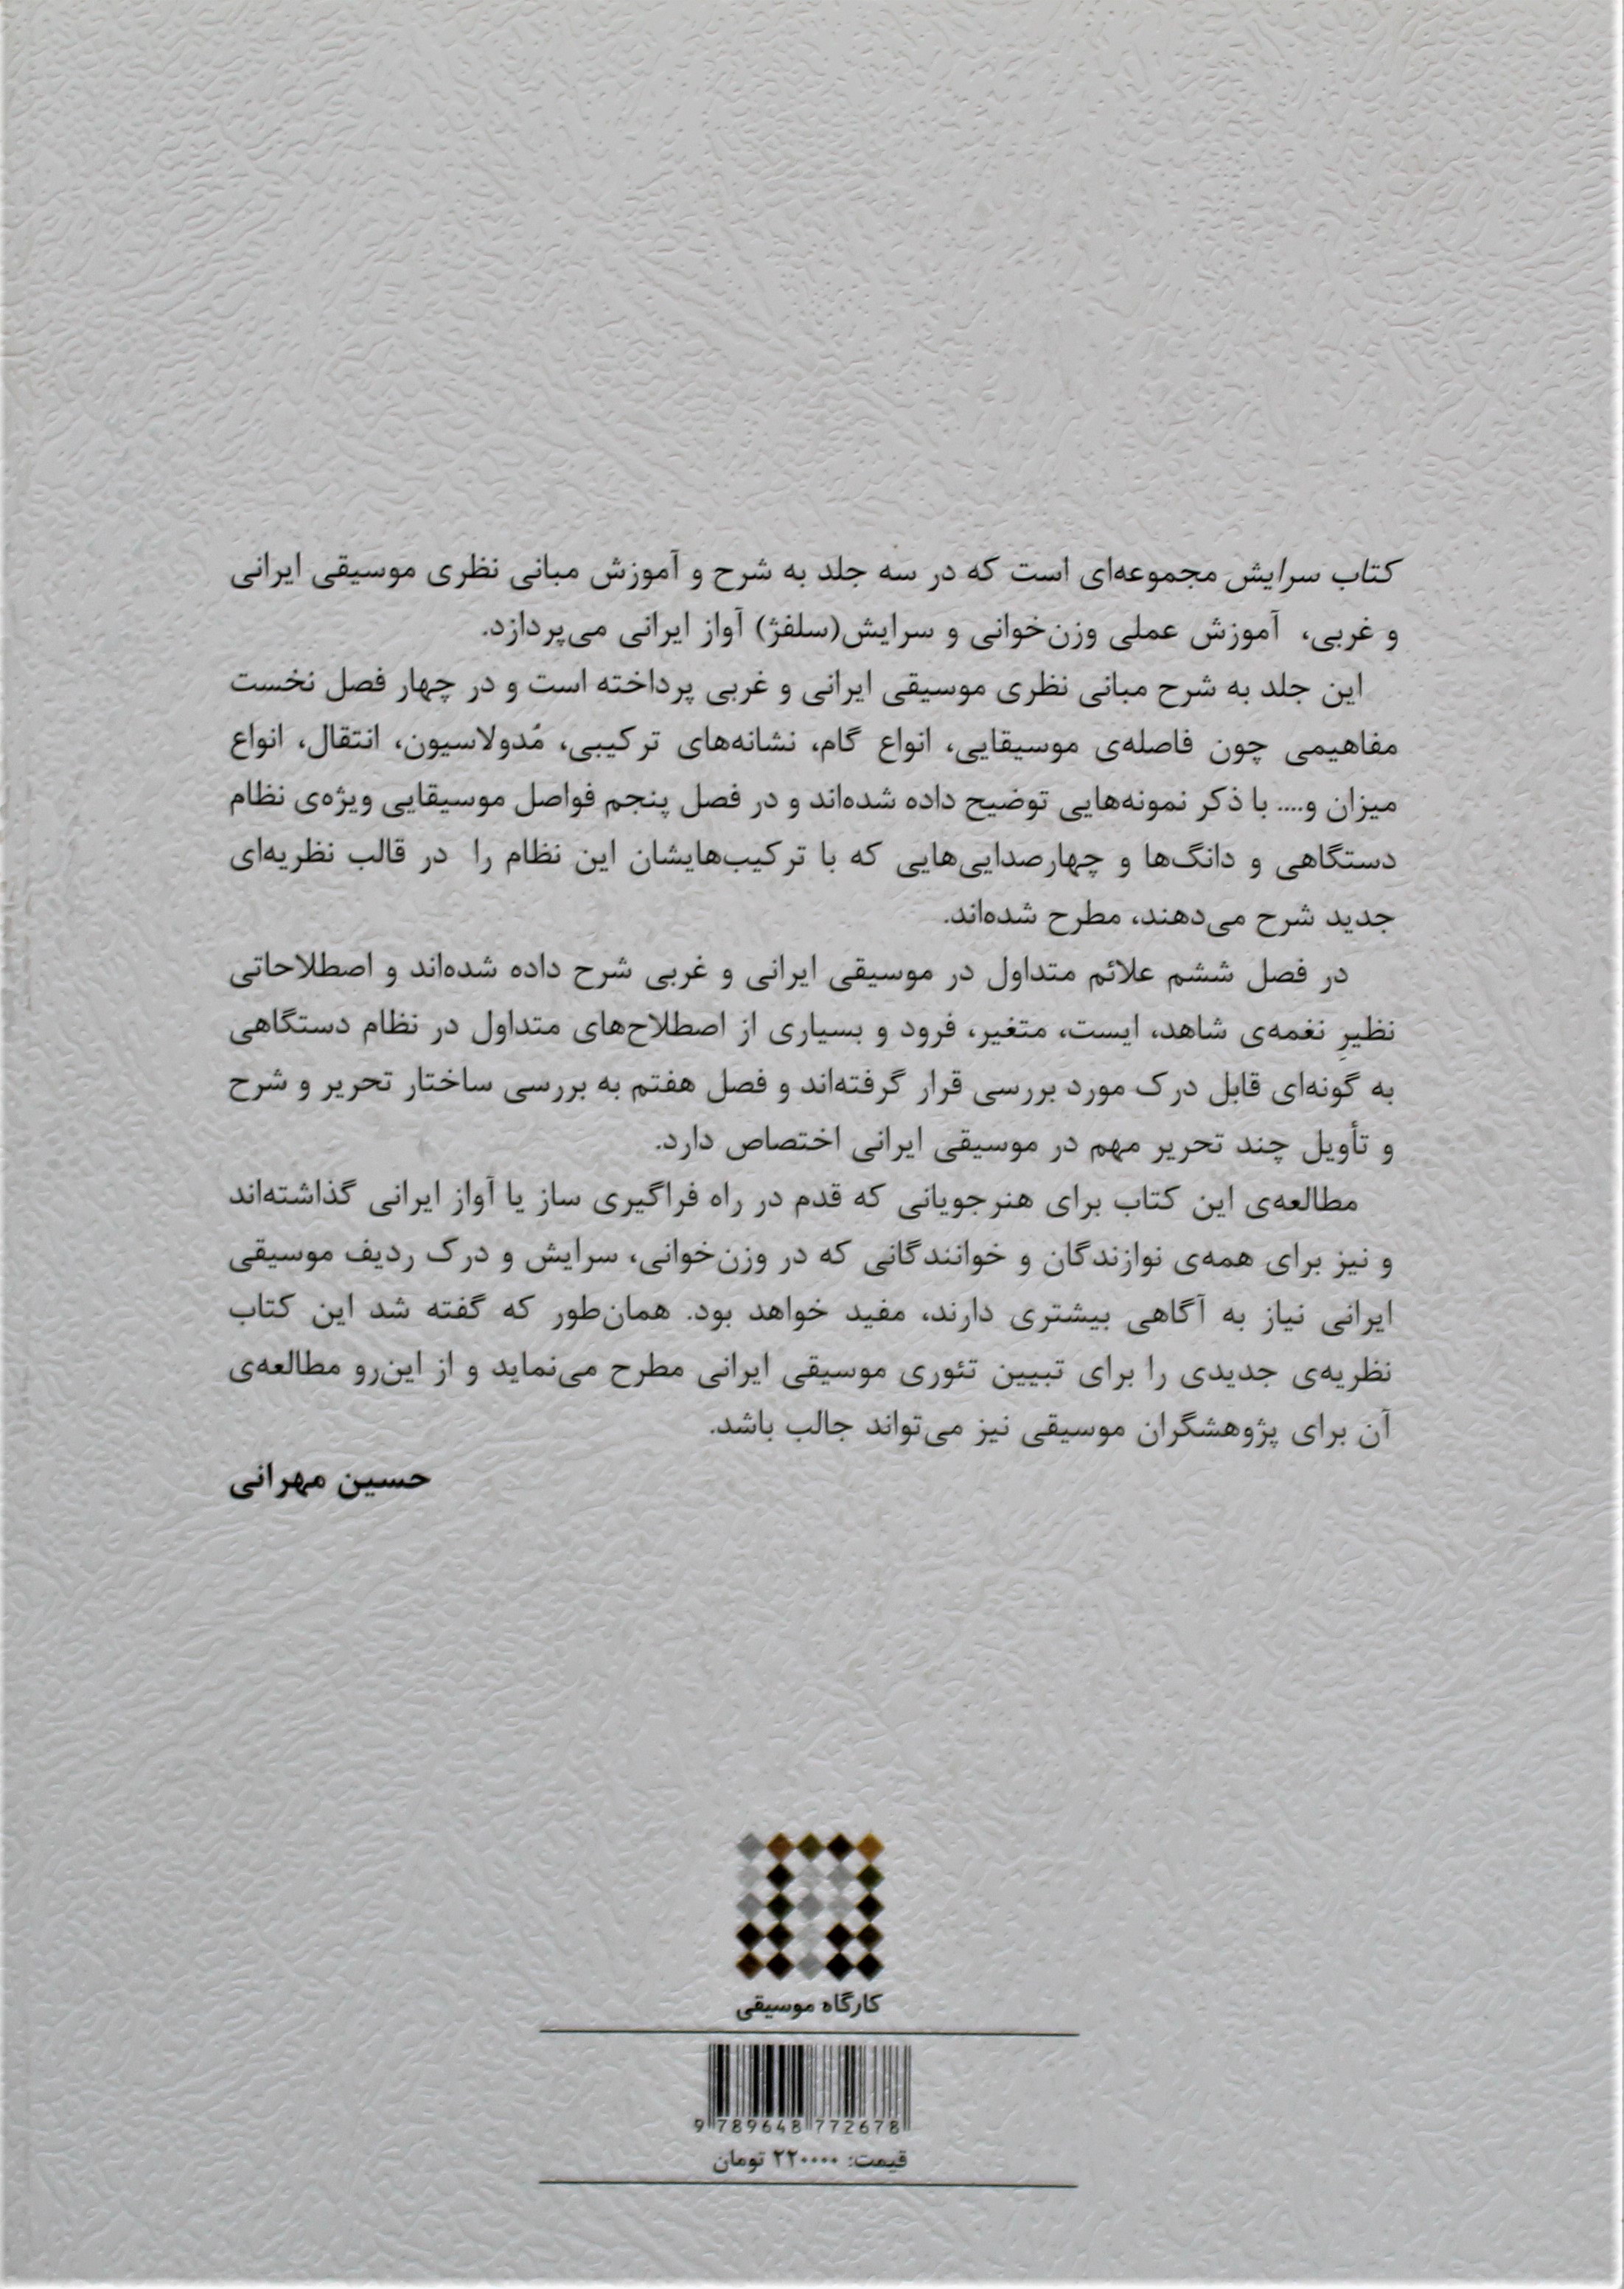 کتاب سرایش مجموعه‌ای است که در سه جلد به شرح و آموزش مبانی نظری موسیقی ایرانی
و غربی، آموزش عملی وزن‌خوانی و سرایش(سلفژ) آواز ایرانی می‌پردازد.
این جلد به شرح مبانی نظری موسیقی ایرانی و غربی پرداخته است و در چهار فصل نخست
مفاهیمی چون فاصله‌ی موسیقایی، انواع گام، نشانه‌های ترکیبی، مُدولاسیون، انتقال، انواع
میزان و.... با ذکر نمونه‌هایی توضیح داده شده‌اند و در فصل پنجم فواصل موسیقایی ویژه‌ی نظام
دستگاهی و دانگ‌ها و چهارصدایی‌هایی که با ترکیب‌هایشان این نظام را در قالب نظریه‌ای
جدید شرح می‌دهند، مطرح شده‌اند.
در فصل ششم علائم متداول در موسیقی ایرانی و غربی شرح داده شده‌اند و اصطلاحاتی
نظیرِ نغمه‌ی شاهد، ایست، متغیر، فرود و بسیاری از اصطلاح‌های متداول در نظام دستگاهی
به گونه‌ای قابل درک مورد بررسی قرار گرفته‌اند و فصل هفتم به بررسی ساختار تحریر و شرح
و تأویل چند تحریر مهم در موسیقی ایرانی اختصاص دارد.
مطالعه‌ی این کتاب برای هنرجویانی که قدم در راه فراگیری ساز یا آواز ایرانی گذاشته‌اند
و نیز برای همه‌ی نوازندگان و خوانندگانی که در وزن‌خوانی، سرایش و درک ردیف موسیقی
ایرانی نیاز به آگاهی بیشتری دارند، مفید خواهد بود. همان‌طور که گفته شد این کتاب
نظریه‌ی جدیدی را برای تبیین تئوری موسیقی ایرانی مطرح می‌نماید و از این‌رو مطالعه‌ی
آن برای پژوهشگران موسیقی نیز می‌تواند جالب باشد.
حسین مهرانی
کارگاه موسیقی
9 789648 772678
قیمت: ۲۲۰۰۰۰ تومان